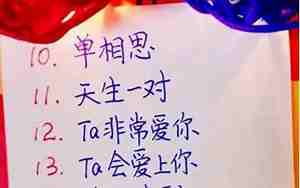 10. 单相思
11. 天生一对
12. Ta非常爱你
13. Ta会爱上你